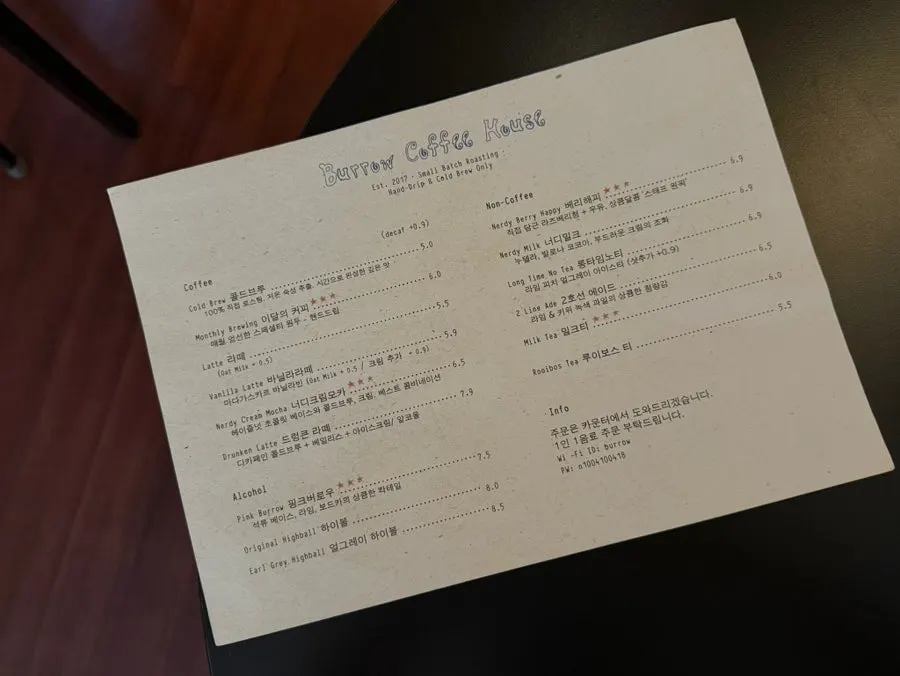 Burrow Coffee House
Est. 2017 · Small Batch Roasting
Hand-Drip & Cold Brew Only
(decaf +0.9)
Coffee
Cold Brew 콜드브루 5.0
100% 직접 로스팅, 저온 숙성 추출, 시간으로 완성한 깊은 맛
Monthly Brewing 이달의 커피 ★★★ 6.0
매월 엄선한 스페셜티 원두 - 핸드드립
Latte 라떼 5.5
(Oat Milk + 0.5)
Vanilla Latte 바닐라라떼 5.9
마다가스카르 바닐라빈 (Oat Milk + 0.5 / 크림 추가 + 0.9)
Nerdy Cream Mocha 너디크림모카 ★★★ 6.5
헤이즐넛 초콜릿 베이스와 콜드브루, 크림, 베스트 콤비네이션
Drunken Latte 드렁큰 라떼 7.9
디카페인 콜드브루 + 베일리스 + 아이스크림/ 알코올
Alcohol
Pink Burrow 핑크버로우 ★★★ 7.5
석류 베이스, 라임, 보드카의 상큼한 칵테일
Original Highball 하이볼 8.0
Earl Grey Highball 얼그레이 하이볼 8.5
Non-Coffee
Nerdy Berry Happy 베리해피 ★★★ 6.9
직접 담근 라즈베리청 + 우유, 상큼달콤 '스태프 원픽'
Nerdy Milk 너디밀크 6.9
누텔라, 발로나 코코아, 부드러운 크림의 조화
Long Time No Tea 롱타임노티 6.9
라임 피치 얼그레이 아이스티 (샷추가 +0.9)
2 Line Ade 2호선 에이드 6.5
라임 & 키위 녹색 과일의 상큼한 청량감
Milk Tea 밀크티 ★★★ 6.0
Rooibos Tea 루이보스 티 5.5
Info
주문은 카운터에서 도와드리겠습니다.
1인 1음료 주문 부탁드립니다.
Wi -Fi ID: burrow
PW: n1004100418